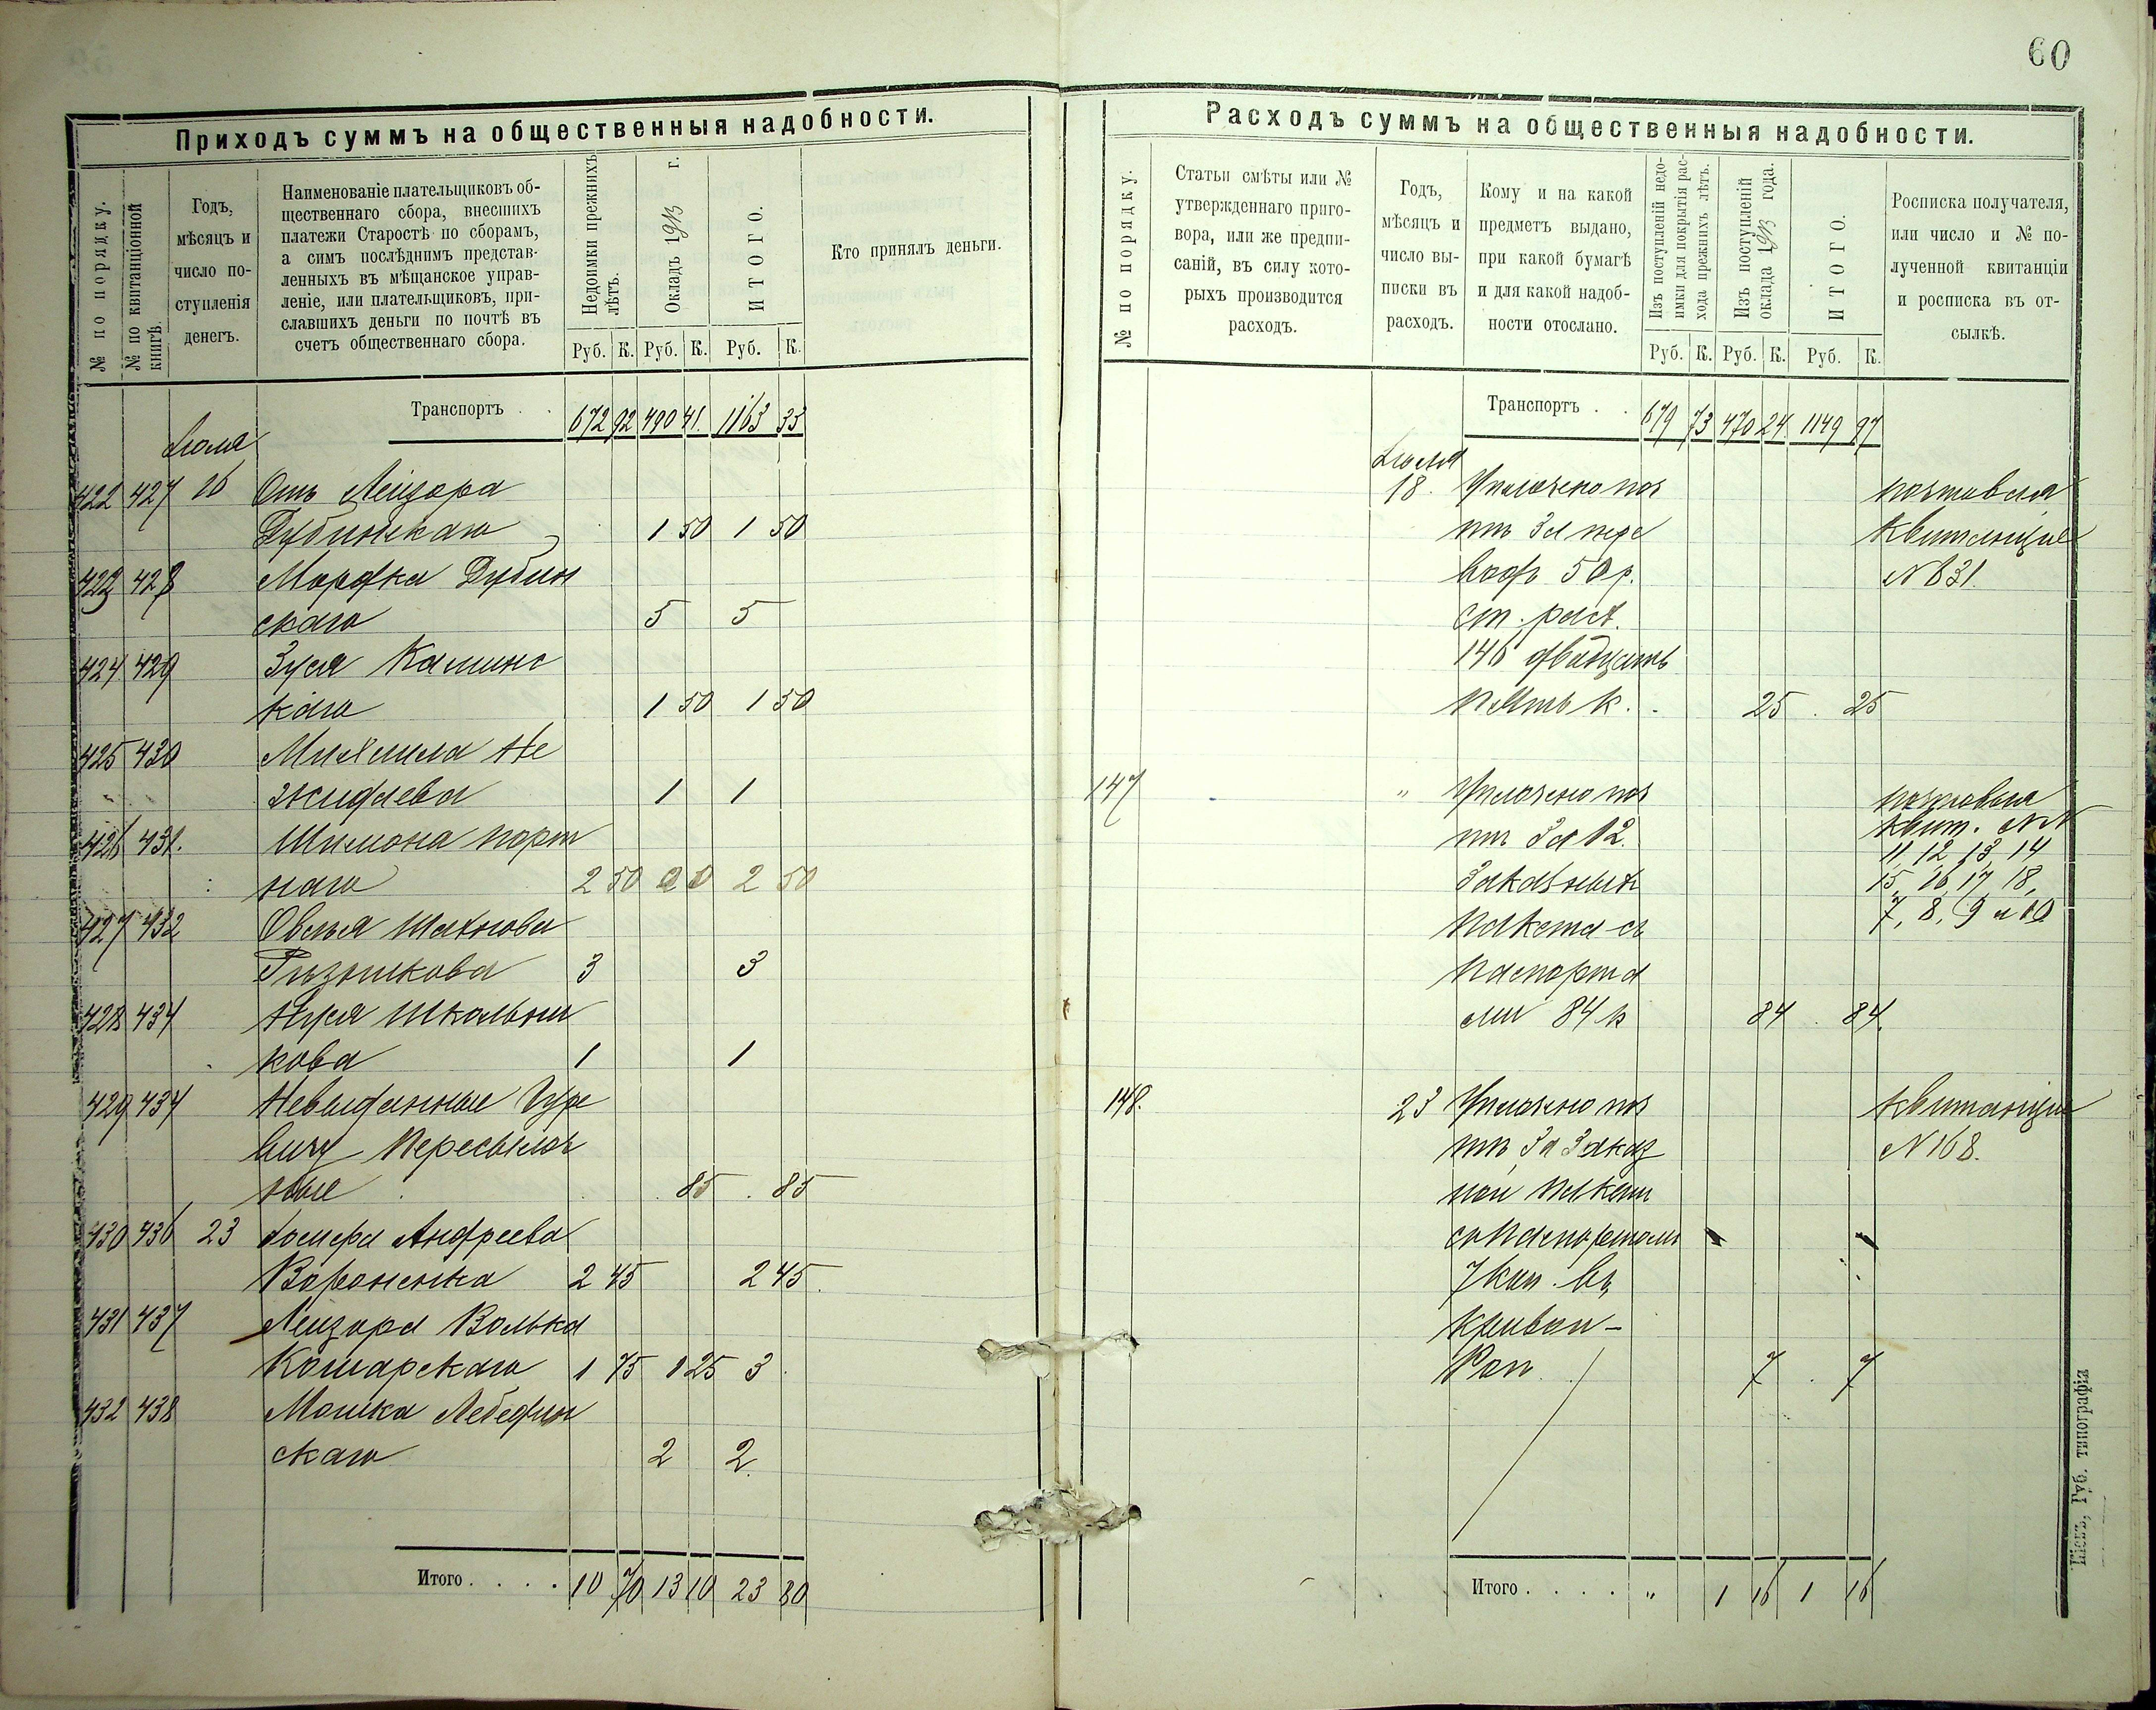 60
Приходъ суммъ на общественныя надобности.
№ по порядку.
№ по квитанціонной книгѣ.
Годъ,
мѣсяцъ и
число по-
ступленія
денегъ.
Наименованіе плательщиковъ об-
щественнаго сбора, внесшихъ
платежи Старостѣ по сборамъ,
а симъ послѣднимъ представ-
ленныхъ въ мѣщанское управ-
леніе, или плательщиковъ, при-
славшихъ деньги по почтѣ въ
счетъ общественнаго сбора.
Недоимки прежнихъ лѣтъ.
Окладъ 1913 г.
ИТОГО.
Кто принялъ деньги.
Руб. К. Руб. К. Руб. К.
Транспортъ . . 672 92 490 41 1163 33
Іюля
422 427 16 Отъ Лейзора
Дубинскаго 1 50 1 50
423 428 Мордка Дубин
скаго 5 5
424 429 Зуся Калинс
каго 1 50 1 50
425 430 Михаила Не
жидаева 1 1
426 431. Шимона порт
наго 2 50 2 50
427 432 Овсея Шахнова
Рѣзникова 3 3
428 434 Нуся Школьни
кова 1 1
429 434 Невыданные Гуре
вичу Пересылоч
ные 85 85
430 436 23 Андреева
Вороненка 2 45 2 45
431 437 Лейзора Волька
Кошарскаго 1 75 1 25 3
432 438 Мошка Лебедин
скаго 2 2
Итого . . . . 10 70 13 10 23 80
Расходъ суммъ на общественныя надобности.
№ по порядку.
Статьи смѣты или №
утвержденнаго приго-
вора, или же предпи-
саній, въ силу кото-
рыхъ производится
расходъ.
Годъ,
мѣсяцъ и
число вы-
писки въ
расходъ.
Кому и на какой
предметъ выдано,
при какой бумагѣ
и для какой надоб-
ности отослано.
Изъ поступленій недо-
имки для покрытія рас-
хода прежнихъ лѣтъ.
Изъ поступленій
оклада 1913 года.
ИТОГО.
Росписка получателя,
или число и № по-
лученной квитанціи
и росписка въ от-
сылкѣ.
Руб. К. Руб. К. Руб. К.
Транспортъ . . 679 73 470 24 1149 97
Іюля
18. Уплочено поч почтовая
тѣ за пере квитанція
водъ 50 р. N 831.
ст. расх.
146 двадцать
пять к. 25 25
147 " Уплочено поч почтовыя
тѣ за 12 квит. NN
11, 12, 13, 14
заказныхъ 15, 16, 17, 18,
пакета съ 7, 8, 9 и 10
паспорта
ми 84 к 84 84.
148. 23 Уплочено поч квитанція
тѣ за заказ N 168.
ной пакетъ
съ паспортомъ
7 коп. въ
Кривой-
Рогъ 7 7
Итого . . . . " 1 16 1 16
Кіевъ, Губ. типографія